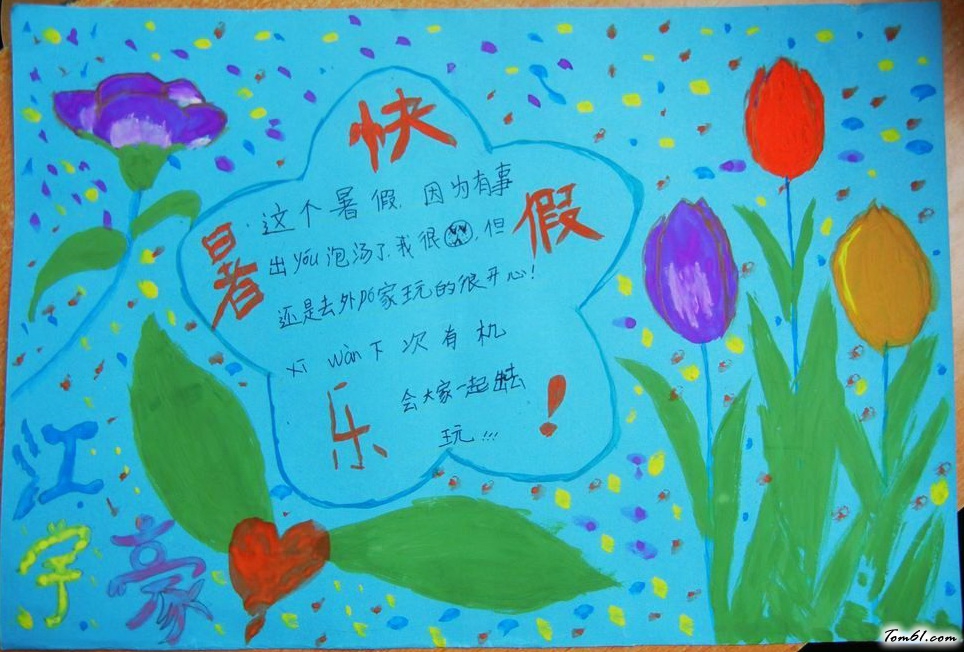 快
暑 假
乐 !
这个暑假,因为有事
出yóu泡汤了.我很,但
还是去外pó家玩的很开心!
xī wàn下次有机
会大家一起出去
玩!!!
江
宇豪
Tom61.com